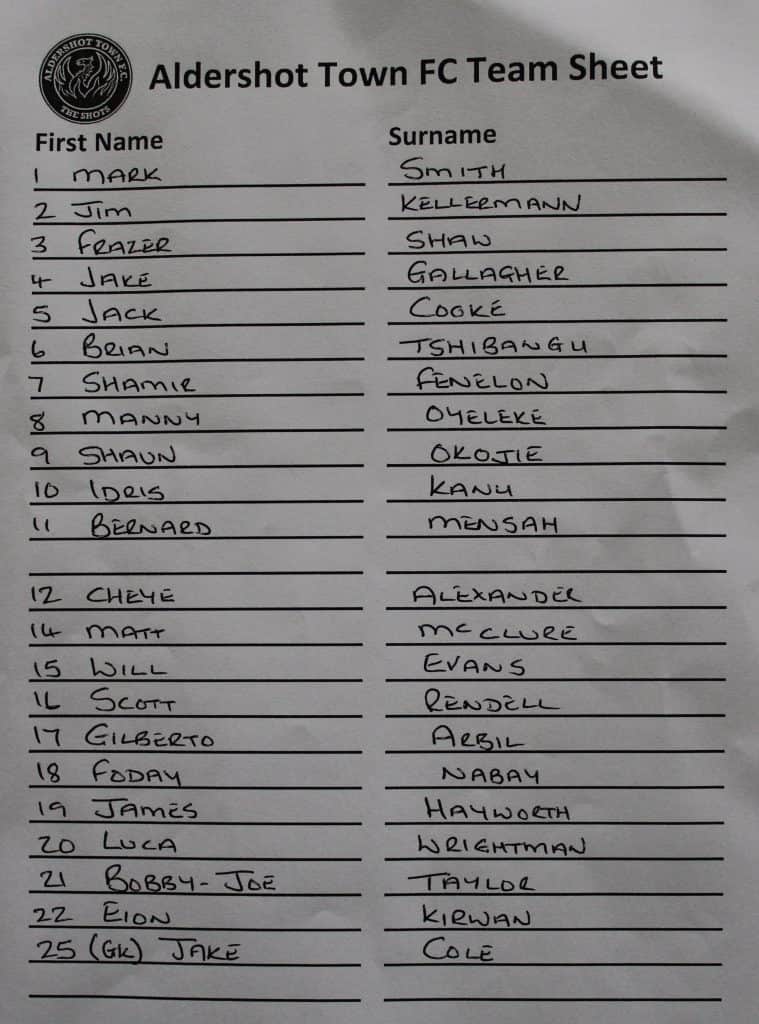 ALDERSHOT TOWN F.C.
THE SHOTS
Aldershot Town FC Team Sheet
First Name Surname
1 MARK SMITH
2 Jim KELLERMANN
3 FRAZER SHAW
4 JAKE GALLAGHER
5 JACK COOKE
6 BRIAN TSHIBANGU
7 SHAMIR FENELON
8 MANNY OYELEKE
9 SHAUN OKOJIE
10 IDRIS KANU
11 BERNARD MENSAH
12 CHEYE ALEXANDER
14 MATT McCLURE
15 WILL EVANS
16 SCOTT RENDELL
17 GILBERTO ARBIL
18 FODAY NABAY
19 JAMES HAYWORTH
20 LUCA WRIGHTMAN
21 BOBBY-JOE TAYLOR
22 EION KIRWAN
25 (GK) JAKE COLE